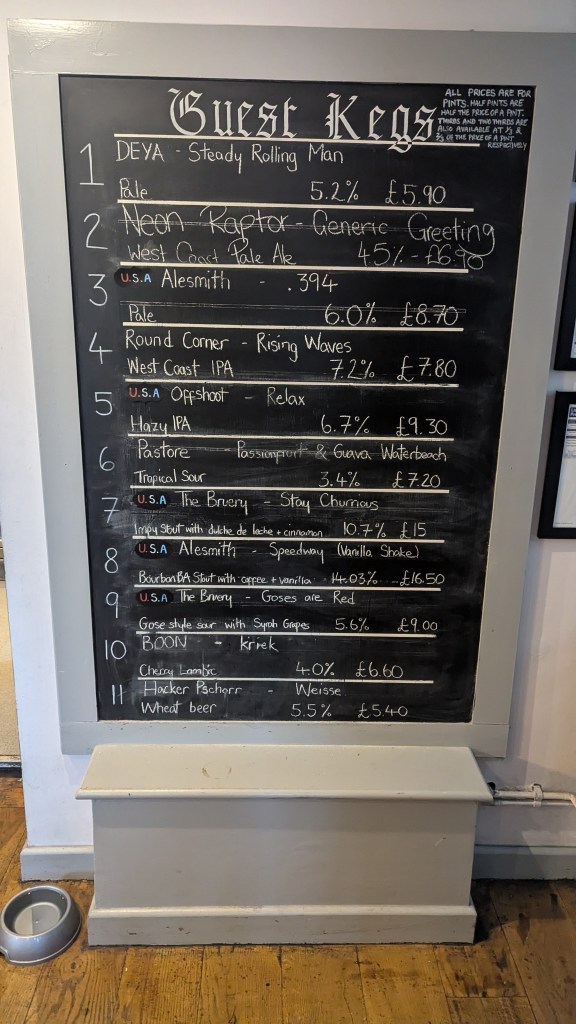 Guest Kegs
ALL PRICES ARE FOR
PINTS. HALF PINTS ARE
HALF THE PRICE OF A PINT.
THIRDS AND TWO THIRDS ARE
ALSO AVAILABLE AT ⅓ &
⅔ OF THE PRICE OF A PINT
RESPECTIVELY
1 DEYA - Steady Rolling Man
Pale 5.2% £5.90
2 Neon Raptor - Generic Greeting
West Coast Pale Ale 4.5% - £6.90
3 U.S.A Alesmith - .394
Pale 6.0% £8.70
4 Round Corner - Rising Waves
West Coast IPA 7.2% £7.80
5 U.S.A Offshoot - Relax
Hazy IPA 6.7% £9.30
6 Pastore - Passionfruit & Guava Waterbeach
Tropical Sour 3.4% £7.20
7 U.S.A The Bruery - Stay Churrious
Impy Stout with dulche de leche + cinnamon 10.7% £15
8 U.S.A Alesmith - Speedway (Vanilla Shake)
Bourbon BA Stout with coffee + vanilla 14.03% £16.50
9 U.S.A The Bruery - Goses are Red
Gose style sour with Syrah Grapes 5.6% £9.00
10 BOON - kriek
Cherry Lambic 4.0% £6.60
11 Hacker Pschorr - Weisse
Wheat beer 5.5% £5.40